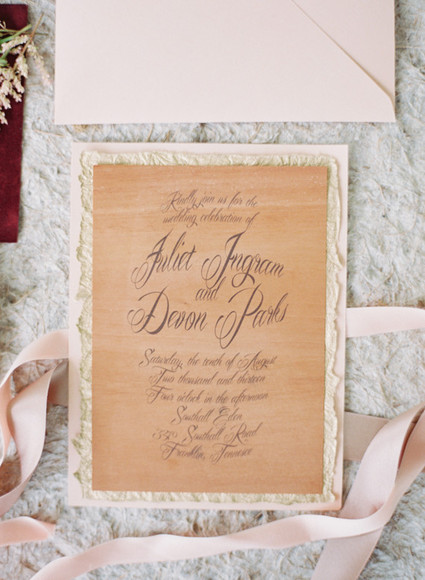 Kindly join us for the
wedding celebration of
Juliet Ingram
and
Devon Parks
Saturday, the tenth of August
Two thousand and thirteen
Four o'clock in the afternoon
Southall Eden
Southall Road
Franklin, Tennessee